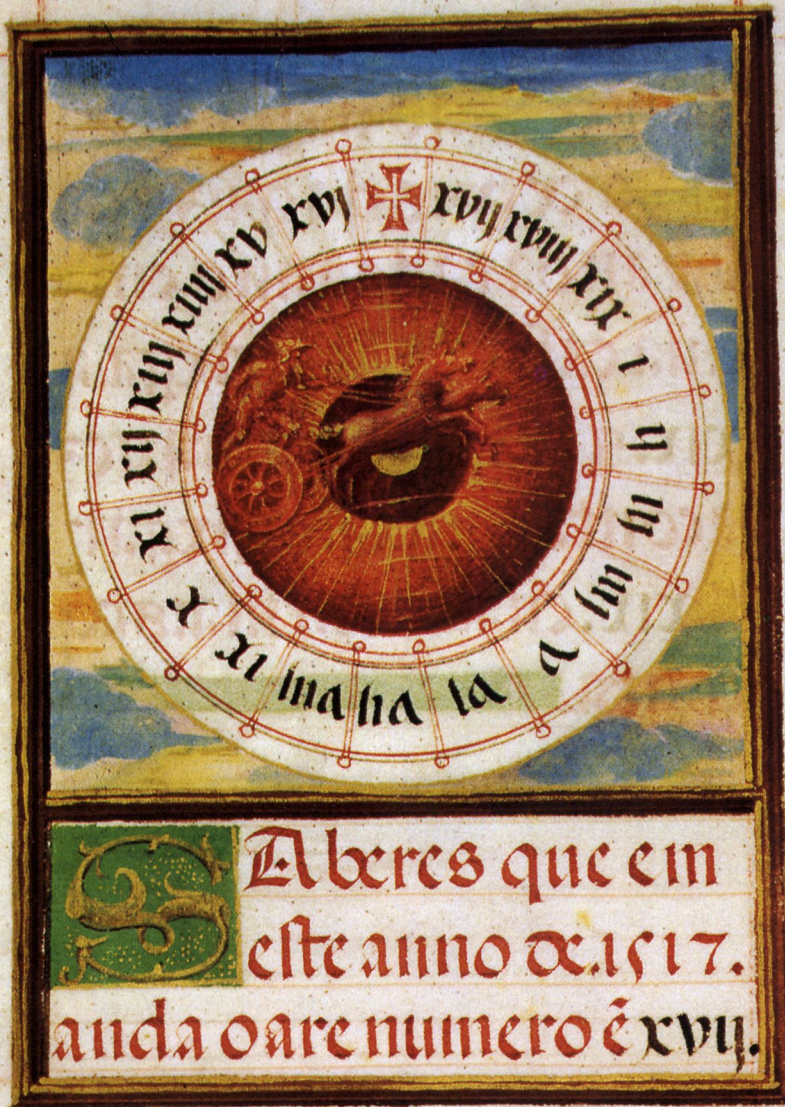 xvij
xviij
xix
i
ij
iij
iiij
v
vi
vij
viij
ix
x
xi
xij
xiij
xiiij
xv
xvj
SAberes que em
este anno de .1517.
anda o are numero ẽ xvij.